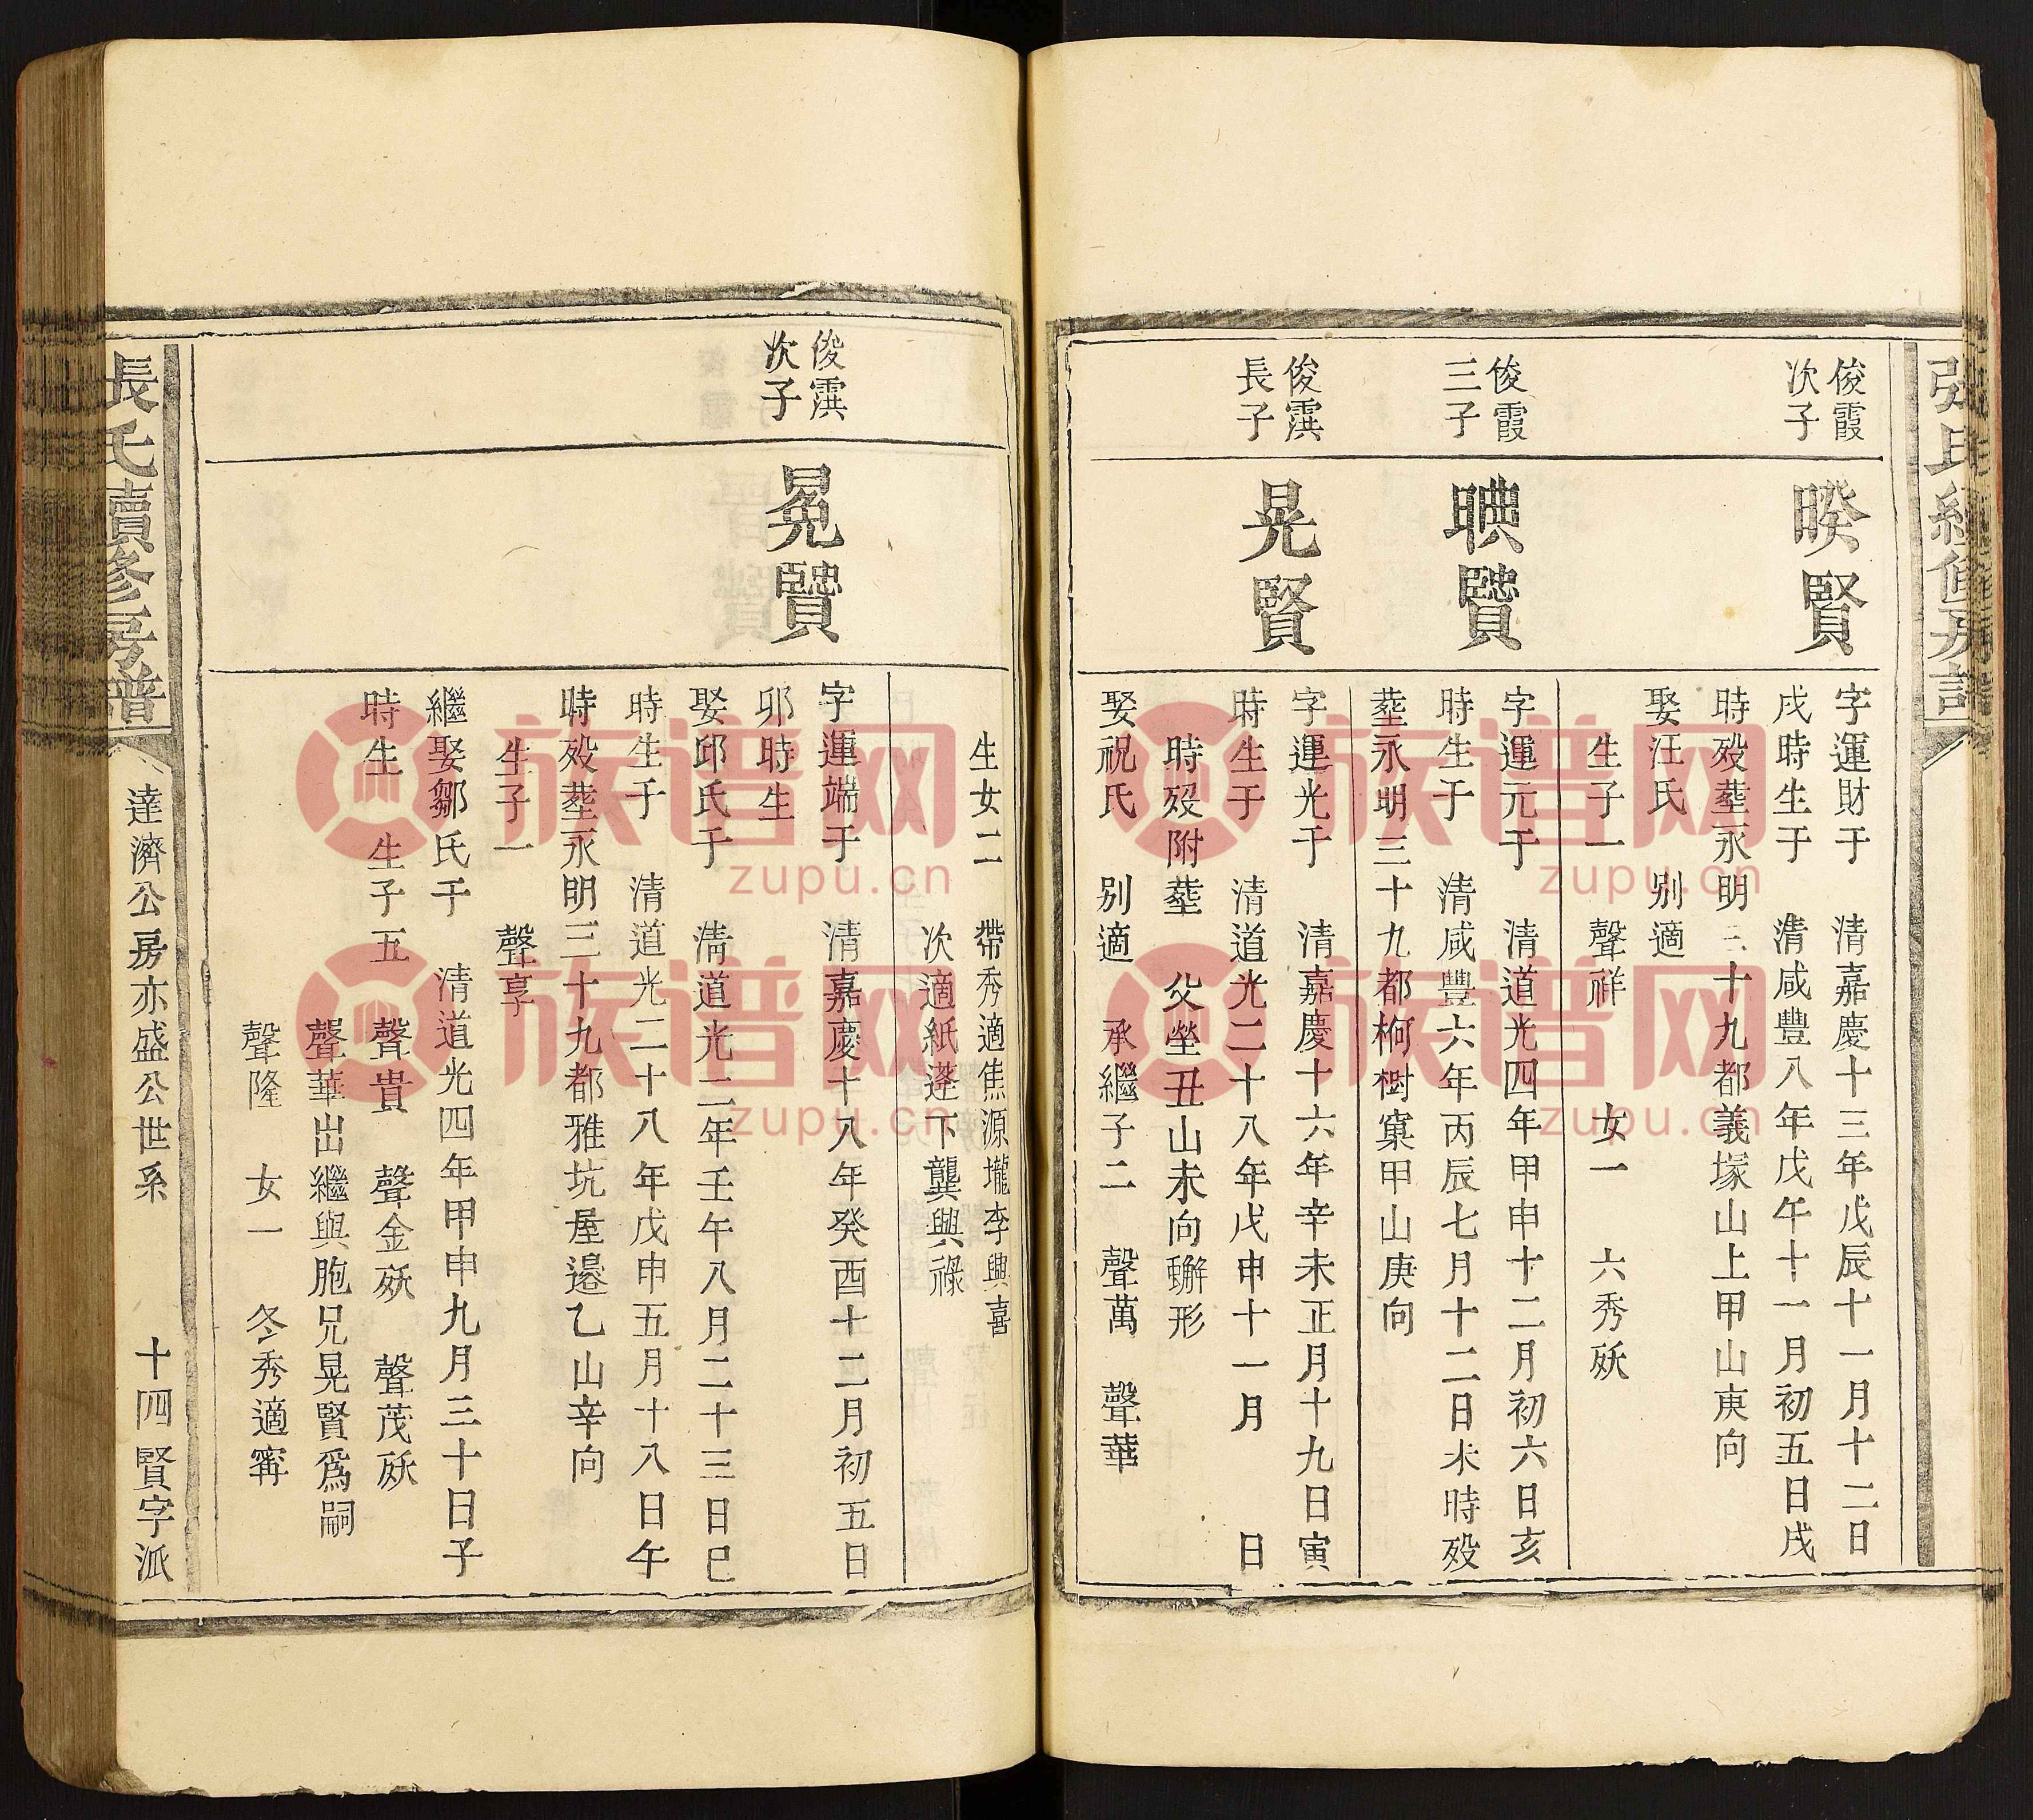 張氏續修房譜
俊霞
次子
暌賢
字運財于　清嘉慶十三年戊辰十一月十二日
戌時生于　清咸豐八年戊午十一月初五日戌
時歿塟永明三十九都義塚山上甲山庚向
娶汪氏　别適
生子一　聲祥　女一　六秀殀
俊霞
三子
賢
字運元于　清道光四年甲申十二月初六日亥
時生于　清咸豐六年丙辰七月十二日未時歿
塟永明三十九都柯樹窠甲山庚向
俊霟
長子
晃賢
字運光于　清嘉慶十六年辛未正月十九日寅
時生于　清道光二十八年戊申十一月　日
時歿附塟　父塋丑山未向形
娶祝氏　别適　承繼子二　聲萬　聲華
生女二　帶秀適焦源壠李興喜
次適紙蓬下龔興祿
俊霟
次子
冕賢
字運端于　清嘉慶十八年癸酉十二月初五日
卯時生
娶邱氏于　清道光二年壬午八月二十三日巳
時生于　清道光二十八年戊申五月十八日午
時歿塟永明三十九都雅坑屋邉乙山辛向
生子一　聲享
繼娶鄒氏于　清道光四年甲申九月三十日子
時生　生子五　聲貴　聲金殀　聲茂殀
聲華出繼與胞兄晃賢爲嗣
聲隆　女一　冬秀適寗
張氏續修房譜　達濟公房亦盛公世系　十四賢字派
族谱网
zupu.cn
族谱网
zupu.cn
族谱网
zupu.cn
族谱网
zupu.cn